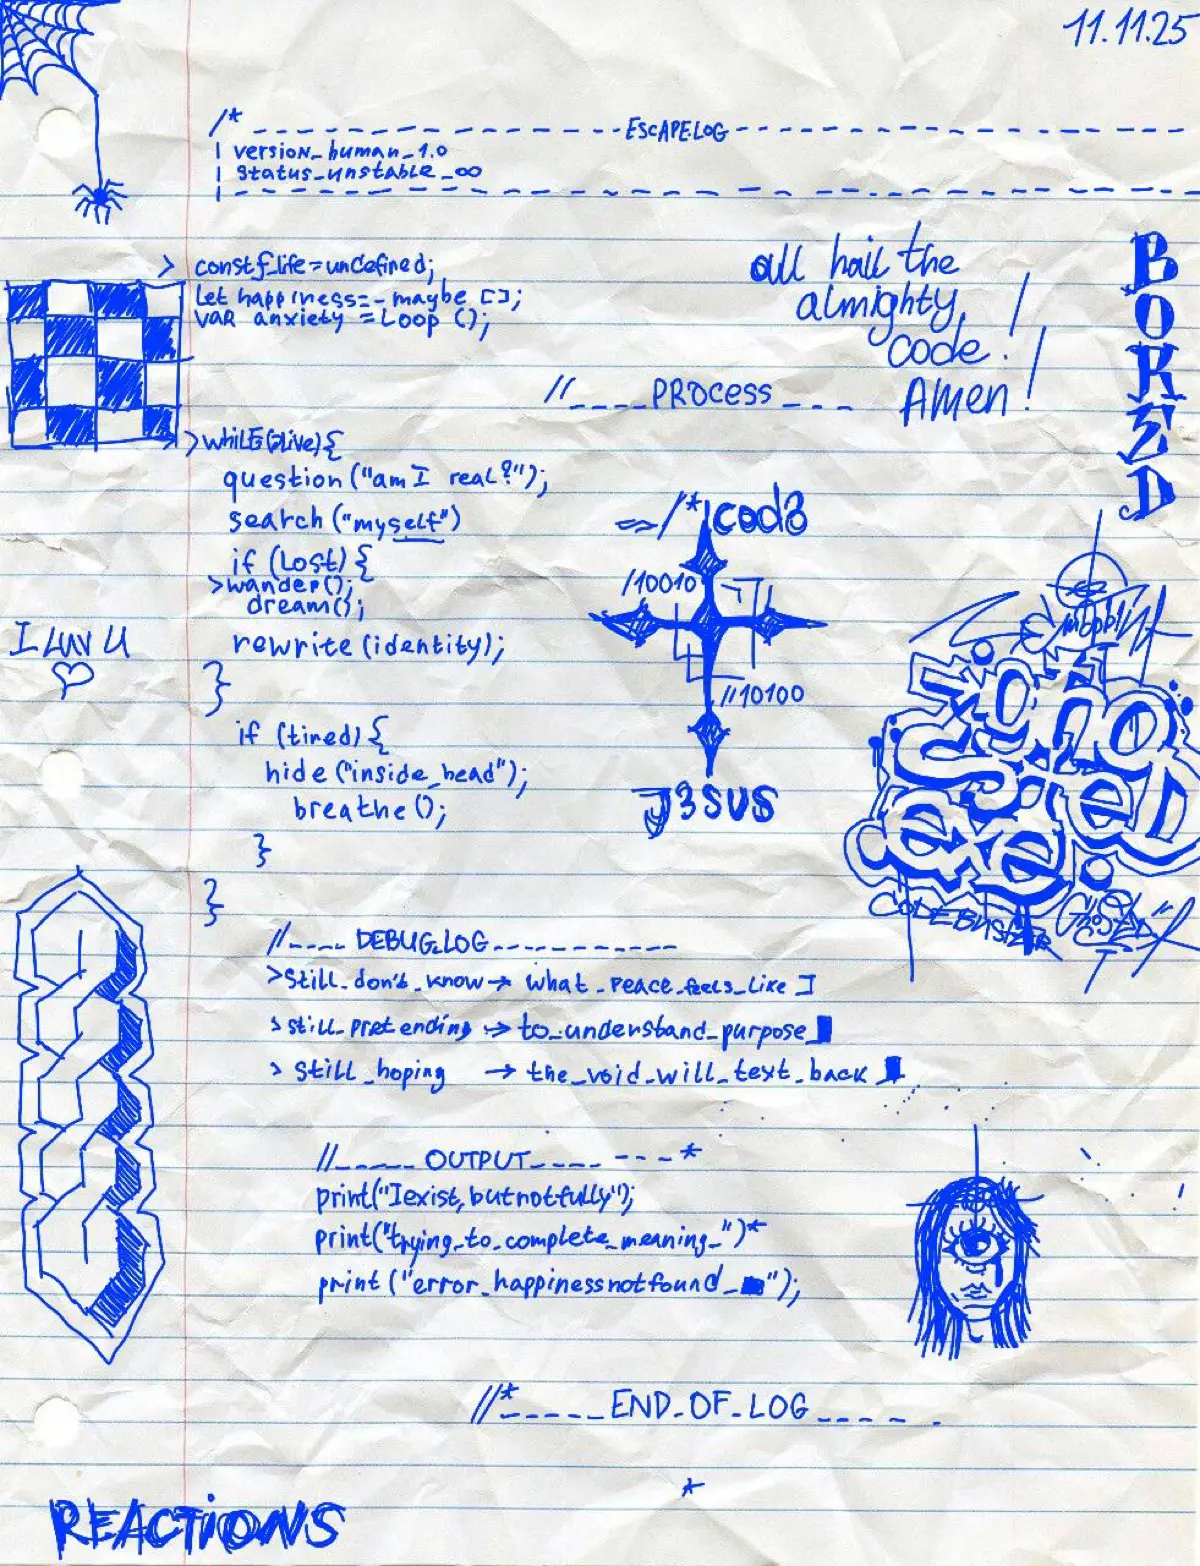 11.11.25
/* ----------ESCAPE.LOG----------
| version_human_1.0
| status_unstable_∞
> const f_life=undefined;
let happiness=-maybe [];
var anxiety =Loop ();
all hail the
almighty,
code !
Amen!
BORΣD
//____PROCESS_ _ _
>whilE(alive){
question ("am I real?");
search ("myself")
if (Lost) {
>wander();
dream();
rewrite (identity);
}
if (tired) {
hide ("inside_head");
breathe ();
}
}
I LUV U
/*|cod3
/10010
//10100
J3SUS
exe
CODEBUSTER
//---- DEBUG.LOG-----------
>still_don't_know→ what_peace_feels_like
>still_pretending →to_understand_purpose_
> still_hoping → the_void_will_text_back
//_____OUTPUT____ ---*
print("I exist, but not fully");
print("trying_to_complete_meaning_")*
print ("error_happinessnotfound_ ");
//*_____END_OF_LOG____ _
REACTIONS